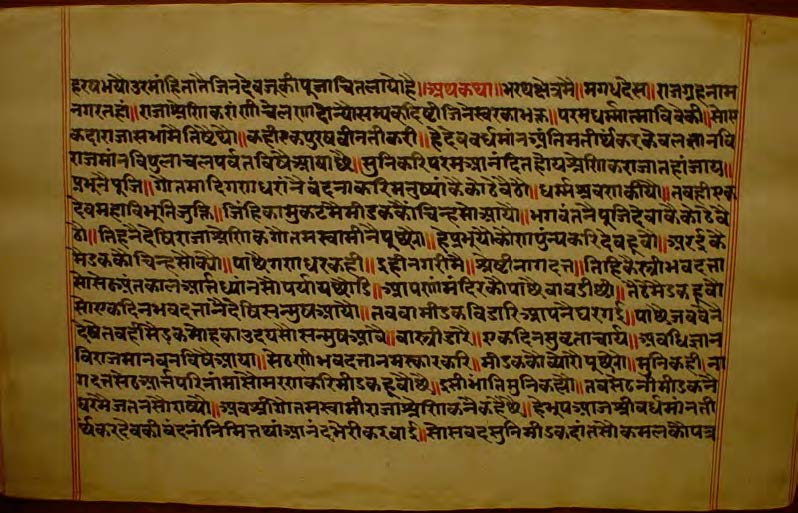 हरषभयौउरमांहितातैजिनदेवजकीपूजाचितलायौहै॥अथकथा॥भरथक्षेत्रमै॥मगधदेस॥राजगृहनाम
नगरतहां॥राजाश्रेणिकरांणीचैलणादोन्यौसम्यकदिष्टीजिनेस्वरकाभक्त॥परमधर्मात्माविवेकी॥सोएक
कदाराजासभामैतिष्टैथौ॥कहीएकपुरषवीनतीकरी॥हेदेववर्धमांनअंतिमतीर्थंकरकेवलज्ञानवि
राजमांनविपुलाचलपर्वतविषैआयाछै॥सुनिकरिपरमआनंदितहोयश्रेणिकराजातहांजाय॥
प्रभूनैपूजि॥गौतमादिगणधरांनैवंदनाकरिमनुष्यांकैकोठैबैठो॥धर्मश्रवणकीयौ॥तबहीएक
देवमहाविभूतिजुक्ति॥जिंहिकामुकटमैमीडककौचिन्हसोआयौ॥भगवंतनैपूजिदेवाकैकोठैबै
ठौ॥तिहनैदेषिराजाश्रेणिकगौतमस्वामीनैपूछैछै॥हेप्रभूयौकौणपुंन्यकरिदेवहूवौ॥अरईकै
मैडककोचिन्हसोक्यौ॥पाछैगणधरकही॥इहीनगरीमै॥श्रेष्टीनागदत्त॥तिहिकैस्त्रीभवदत्ता
सोसेठअंतकालआर्त्तध्यानसौपर्यायछोडि॥आपणांमंदिरकीपाछैबावडीछी॥तेठैमैडकहूवौ
सोएकदिनभवदत्तांनैदेषिसन्मुषआयौ॥तबवामीडकबिडारिआपनैघरगई॥पाछैजबबैनै
देषैतबहीमैडकमोहकाउदयसौसन्मुषआवै॥वास्त्रीडारै॥एकदिनसुव्रताचार्य॥अवधिज्ञान
विराजमानबनविषैआया॥सेठणीभवदत्तानमस्कारकरि॥मीडककौब्यौरोपूछैछै॥मुनिकही॥ना
गदत्तसेठआर्त्तपरिनांमांसौमरणकरिमीडकहूवौछै॥इसीभांतिमुनिकह्यौ॥तबसेठनीमीडकनै
घरमैजतनसौराष्यौ॥अबश्रीगौतमस्वामीराजाश्रेणिकनैकहैछै॥हेभूपआजश्रीवर्धमांनती
र्थंकरदेवकीवंदनांनिमित्तथांआनंदभेरीकरवाई॥सोसबदसुनिमीडकदांतसौकमलकौपत्र